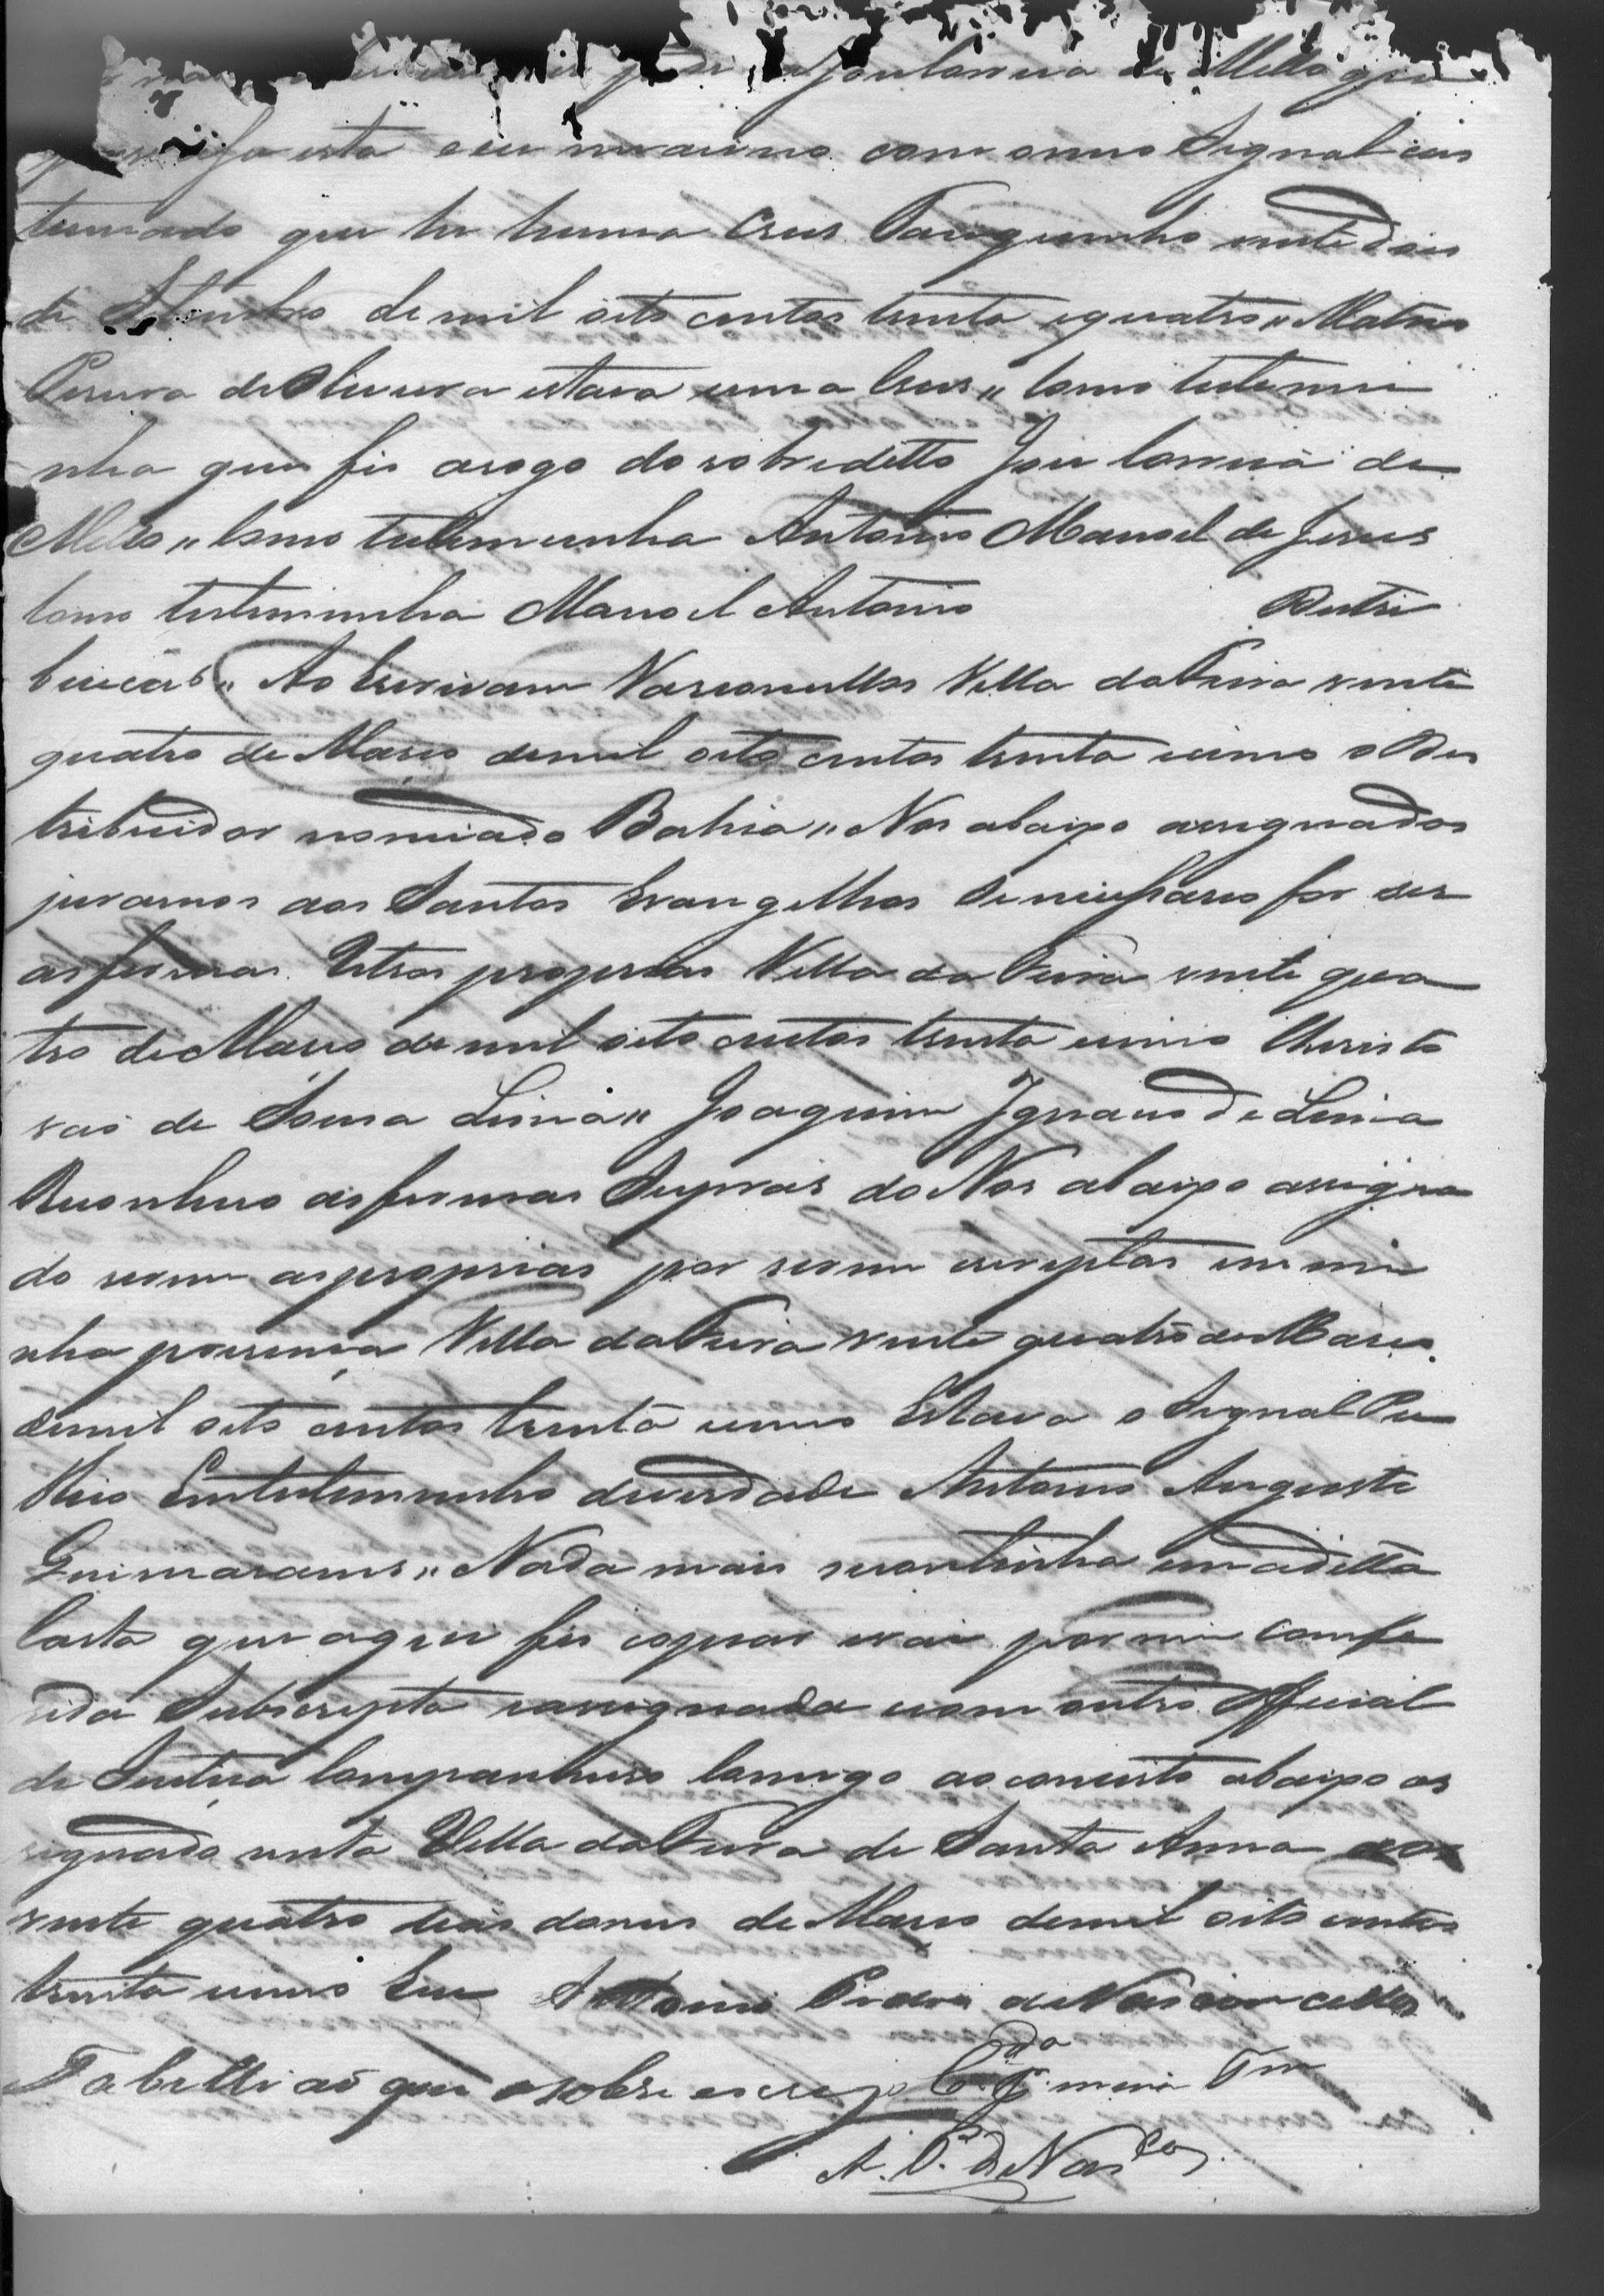 Correia de Mello que
esta e eu me assino com omeo Signal cus
tumado que he huma Crus Tanquinho vinte dois
de Setembro de mil oito centos trinta equatro,, Matias
Pereira de Oliveira estava uma Crus,, Como testemu
nha que fis arogo do sobreditto Joze Correia de
Mello,, Como testemunha Antonio Manoel de Jesus
Como testemunha Manoel Antonio Destri
buicaõ,, Ao Escrivam Vasconcellos Villa daFeira vinte
quatro de Março demil oito centos trinta ecinco o Des
tribuidor nomiado Bahia,, Nos abaixo assignados
juramos aos Santos Evangelhos Sernecessario for ser
asfirmas Retras proprias Villa da Feira vinte qua
tro de Março de mil oito centos trinta ecinco Christo
vaõ de Sousa Lima,, Joaquim Ignacio de Lima
Reconheco asfirmas Supras do Nos abaixo assigna
do serem asproprias por serem escriptas em mi
nha prezença Villa daFeira vinte quatro de Março
demil oito centos trinta ecinco Estava o Signal Pu
blico Emtestemunho deverdade Antonio Augusto
Guimaraens,, Nada mais secontinha emaditta
Carta que aqui fis copiar evai por mim Confe
rida Subscripta eassignada ecom outro Official
de Justiça Companheiro Comigo aoconcerto abaixo as
signado nesta Villa daFeira de Santa Anna aos
vinte quatro dias domes de Março demil oito centos
trinta ecinco Eu Antonio Pedra de Vasconcellos
Tabelliaõ que o sobre escrevy
A. P. de Vas.cos